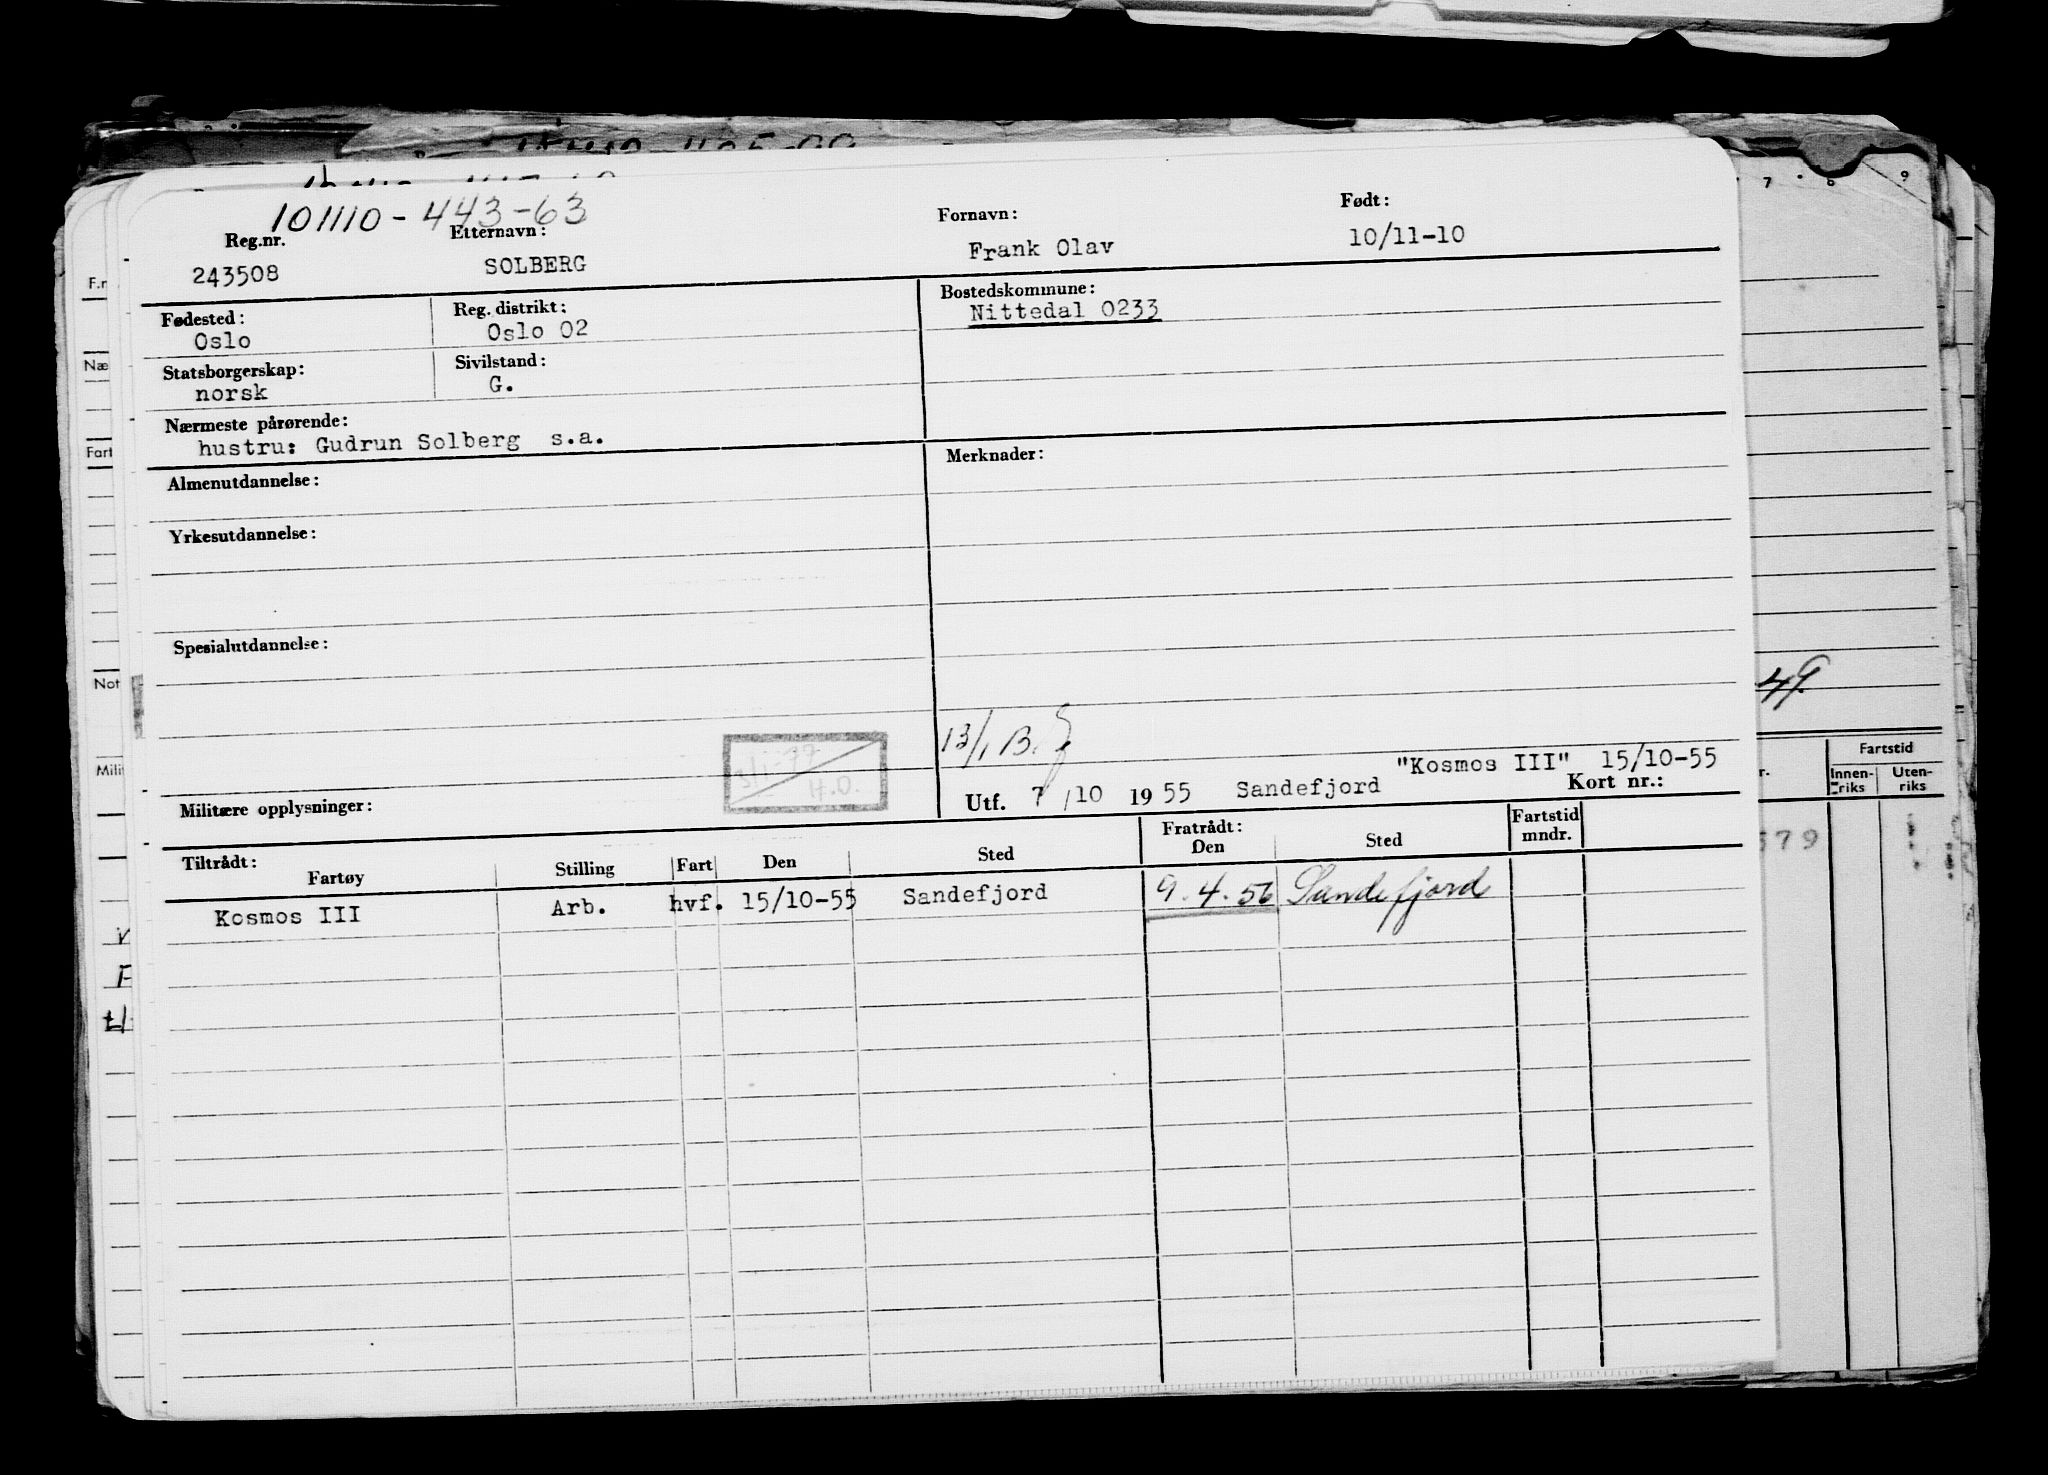 101110-443-63
Reg.nr. Etternavn: Fornavn: Født:
243508 SOLBERG Frank Olav 10/11-10
Fødested: Reg. distrikt: Bostedskommune:
Oslo Oslo 02 Nittedal 0233
Statsborgerskap: Sivilstand:
norsk G.
Nærmeste pårørende:
hustru: Gudrun Solberg s.a.
Almenutdannelse: Merknader:
Yrkesutdannelse:
Spesialutdannelse:
3/1-77
H.O.
13/1 B.
"Kosmos III" 15/10-55
Militære opplysninger: Utf. 7/10 1955 Sandefjord Kort nr.:
Tiltrådt: Fratrådt: Fartstid
Fartøy Stilling Fart Den Sted Den Sted mndr.
Kosmos III Arb. hvf. 15/10-55 Sandefjord 9.4.56 Sandefjord
F.n
Næ
Fart
Not
Mili
7 8 9
49.
Fartstid
r. Innen-riks Uten-riks
579